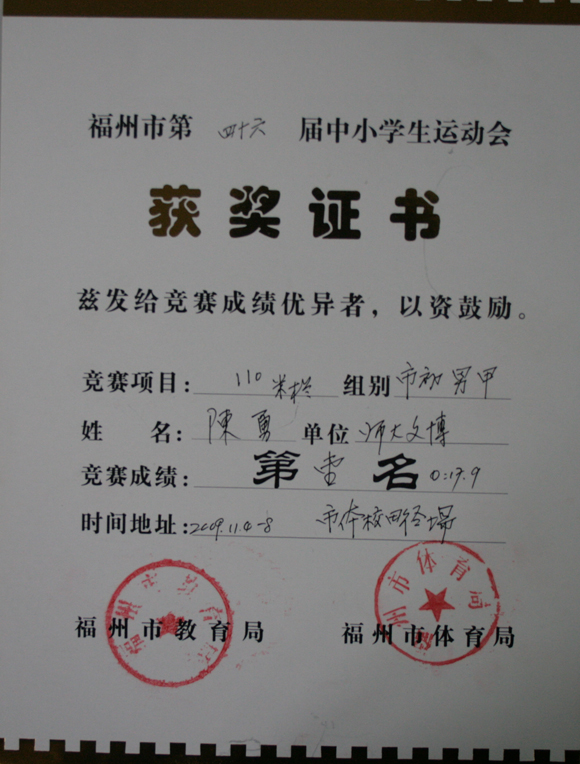 福州市第 四十六 届中小学生运动会
获奖证书
兹发给竞赛成绩优异者，以资鼓励。
竞赛项目: 110米栏 组别 市初男甲
姓 名: 陳勇 单位 师大文博
竞赛成绩: 第壹名 0:17.9
时间地址: 2009.11.4-8 市体校田径场
福州市教育局
福州市体育局
福州市教育局 福州市体育局